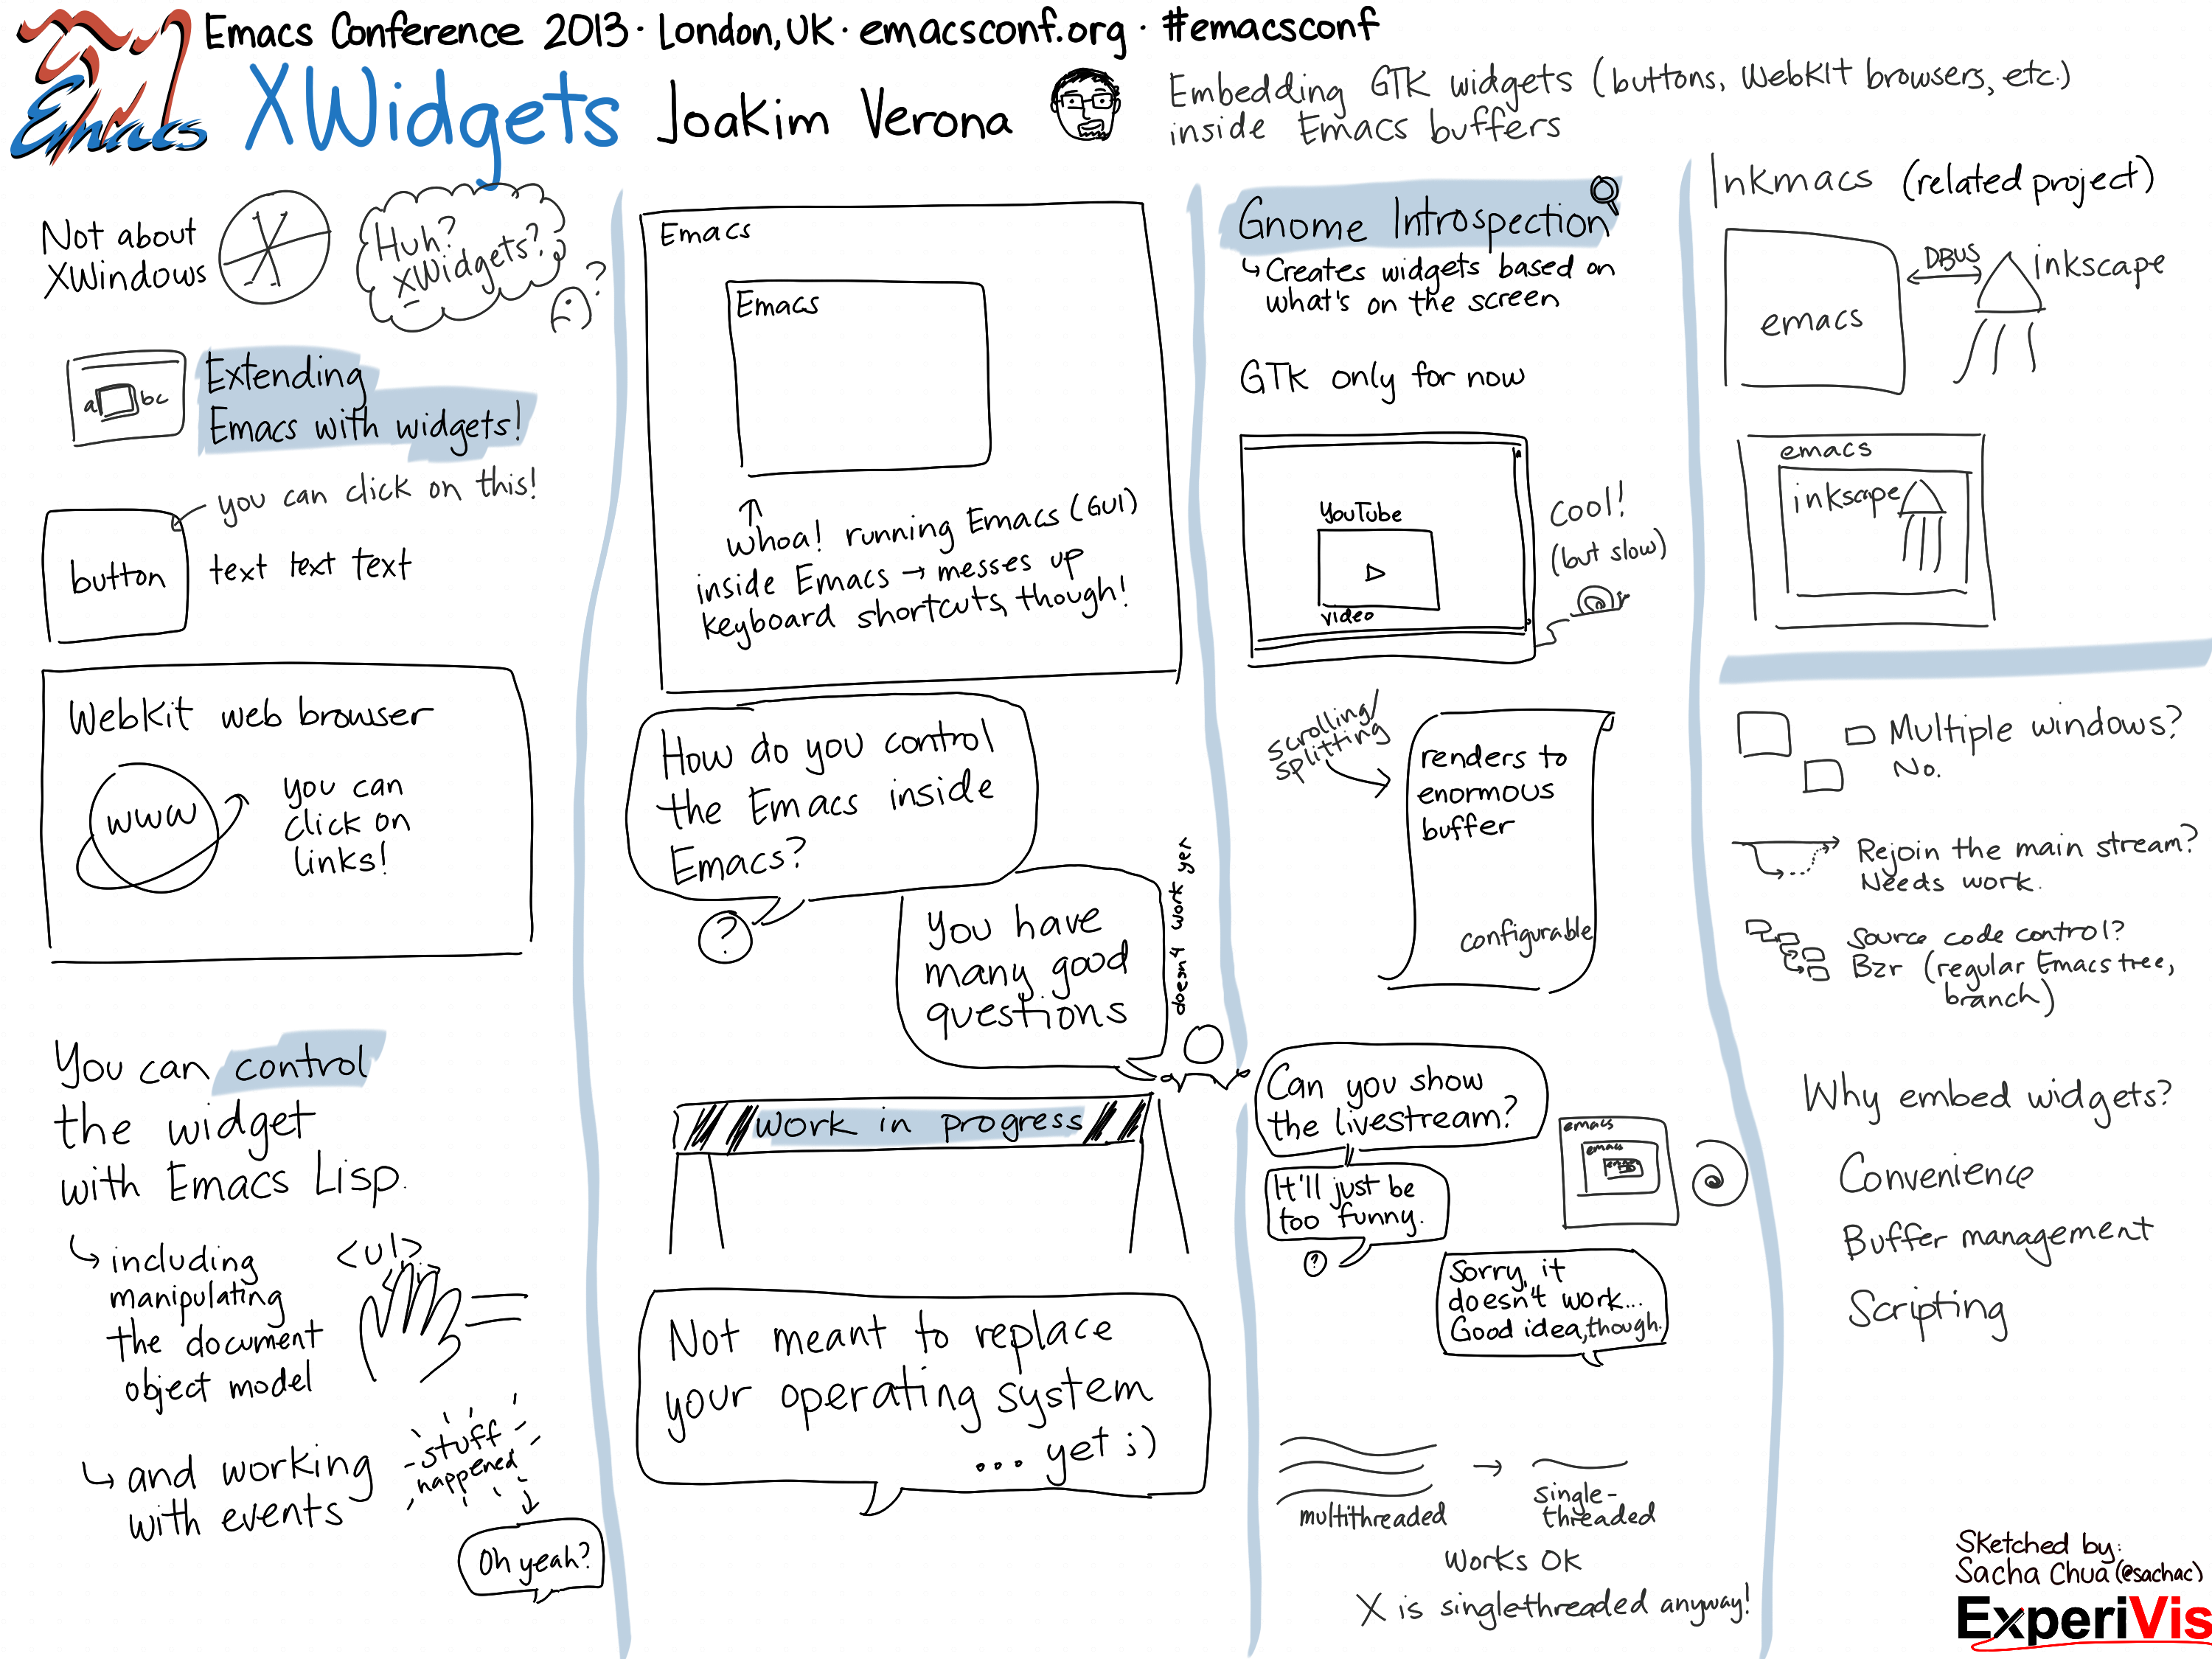 Emacs Conference 2013 · London, UK · emacsconf.org · #emacsconf
Emacs
XWidgets Joakim Verona
Embedding GTK widgets (buttons, WebKit browsers, etc.)
inside Emacs buffers
Not about
XWindows
X
Huh?
XWidgets?
?
a bc
Extending
Emacs with widgets!
you can click on this!
button
text text text
WebKit web browser
www
you can
click on
links!
You can control
the widget
with Emacs Lisp.
including
manipulating
the document
object model
<ul>
and working
with events
stuff
happened
Oh yeah?
Emacs
Emacs
whoa! running Emacs (GUI)
inside Emacs → messes up
keyboard shortcuts, though!
How do you control
the Emacs inside
Emacs?
?
You have
many good
questions
doesn't work yet
Work in progress
Not meant to replace
your operating system
... yet ;)
Gnome Introspection
Creates widgets based on
what's on the screen
GTK only for now
YouTube
video
Cool!
(but slow)
scrolling/
splitting
renders to
enormous
buffer
configurable
Can you show
the livestream?
It'll just be
too funny.
?
emacs
emacs
emacs
Sorry, it
doesn't work...
Good idea, though.
multithreaded
→
single-
threaded
Works OK
X is singlethreaded anyway!
Inkmacs (related project)
emacs
DBUS
inkscape
emacs
inkscape
Multiple windows?
No.
Rejoin the main stream?
Needs work.
Source code control?
Bzr (regular Emacs tree,
branch)
Why embed widgets?
Convenience
Buffer management
Scripting
Sketched by:
Sacha Chua (@sachac)
ExperiVis